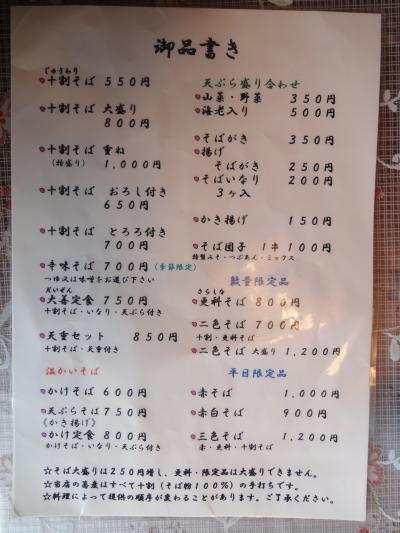 御品書き
じゅうわり
十割そば 550円
十割そば 大盛り
800円
十割そば 重ね
(特盛り) 1,000円
十割そば おろし付き
650円
十割そば とろろ付き
700円
辛味そば 700円(季節限定)
つゆ又は味噌をお選び下さい
だいぜん
大善定食 750円
十割そば・いなり・天ぷら付き
天重セット 850円
十割そば・天重付き
温かいそば
かけそば 600円
天ぷらそば 750円
《かき揚げ》
かけ定食 800円
かけそば・いなり・天ぷら付き
天ぷら盛り合わせ
山菜・野菜 350円
海老入り 500円
そばがき 350円
揚げ
そばがき 250円
そばいなり 200円
3ヶ入
かき揚げ 150円
そば団子 1串100円
特製みそ・つぶあん・ミックス
数量限定品
さらしな
更科そば 800円
二色そば 700円
十割・更科そば
二色そば 大盛り 1,200円
平日限定品
赤そば 1,000円
赤白そば 900円
三色そば 1,200円
赤・更科・十割そば
☆そば大盛りは250円増し、更科・限定品は大盛りできません。
☆当店の蕎麦はすべて十割(そば粉100%)の手打ちです。
☆料理によって提供の順序が変わることがあります。ご了承ください。